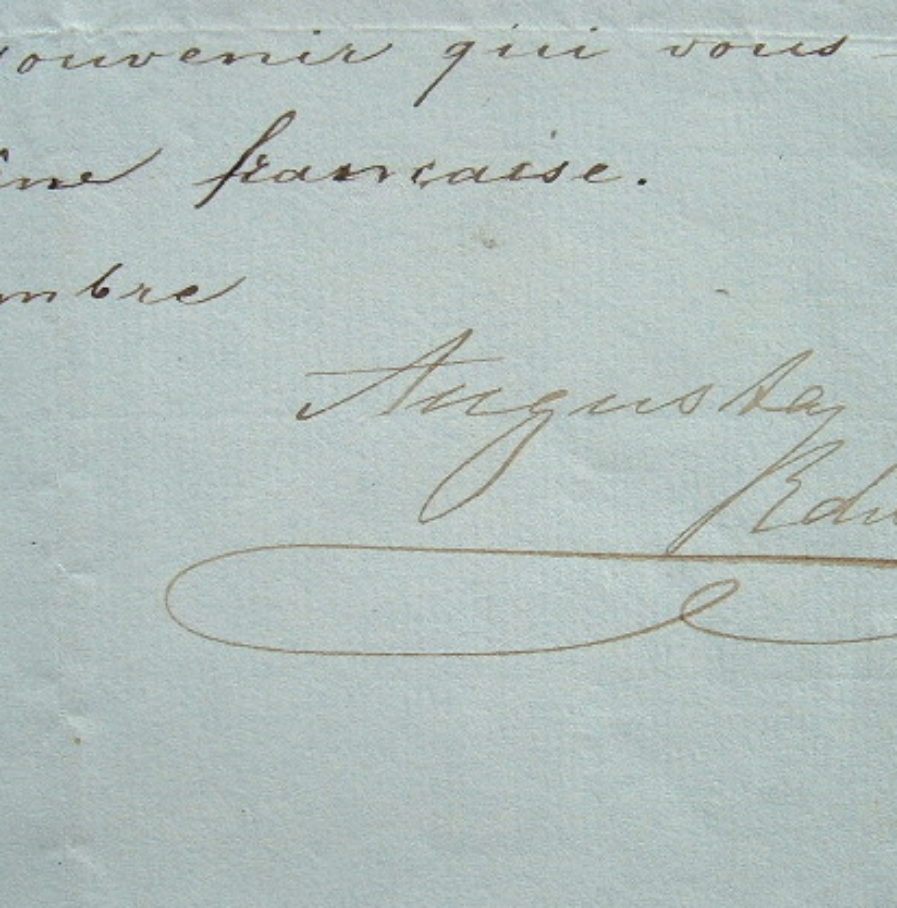 souvenir qui vous
française.
mbre
Augusta